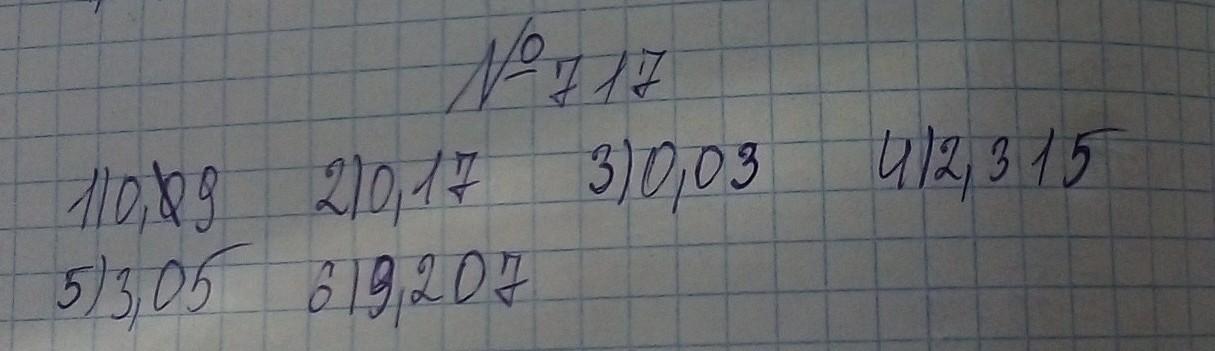 № 717
1) 0,09 2) 0,17 3) 0,03 4) 2,315
5) 3,05 6) 9,207